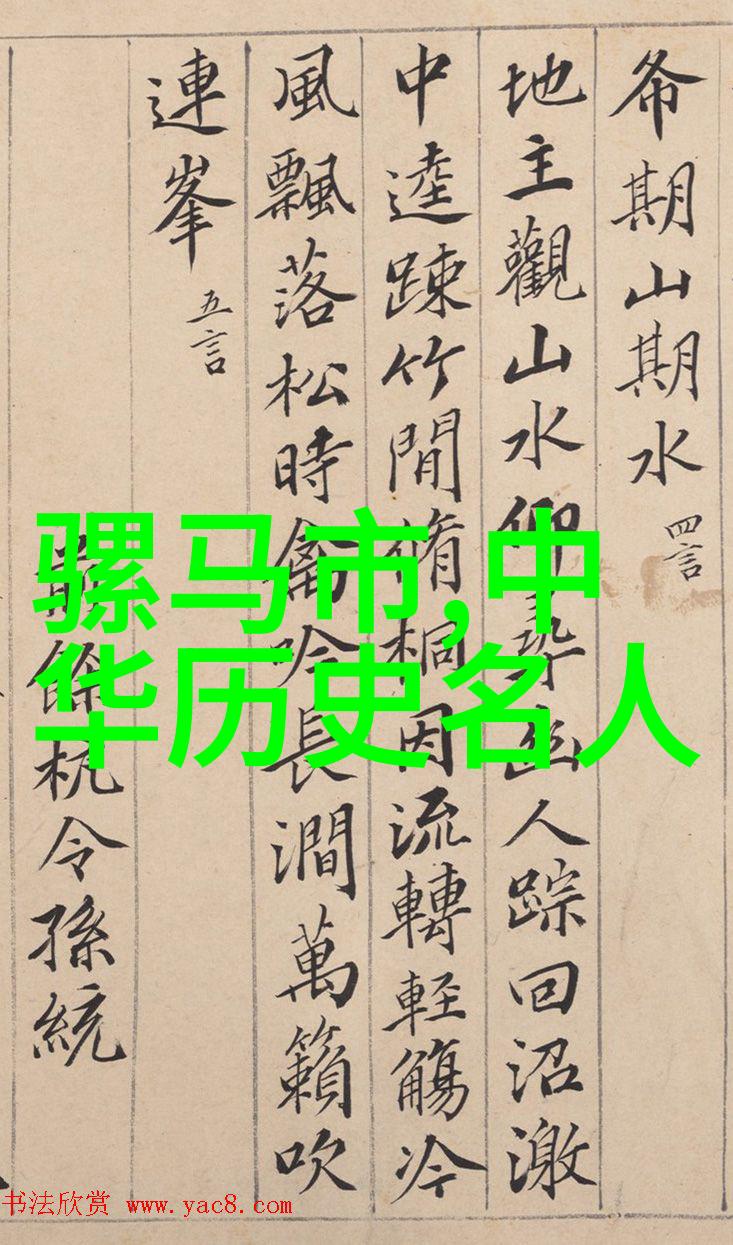 希期山期水 四言
地主觀山水仰尋幽人踪回沼激
中逵踈竹間脩桐因流轉輕觴冷
風飄落松時禽吟長澗萬籟吹
連峯 五言
前餘杭令孫統
骡马市,中
华历史名人
书法欣赏 www.yac8.com